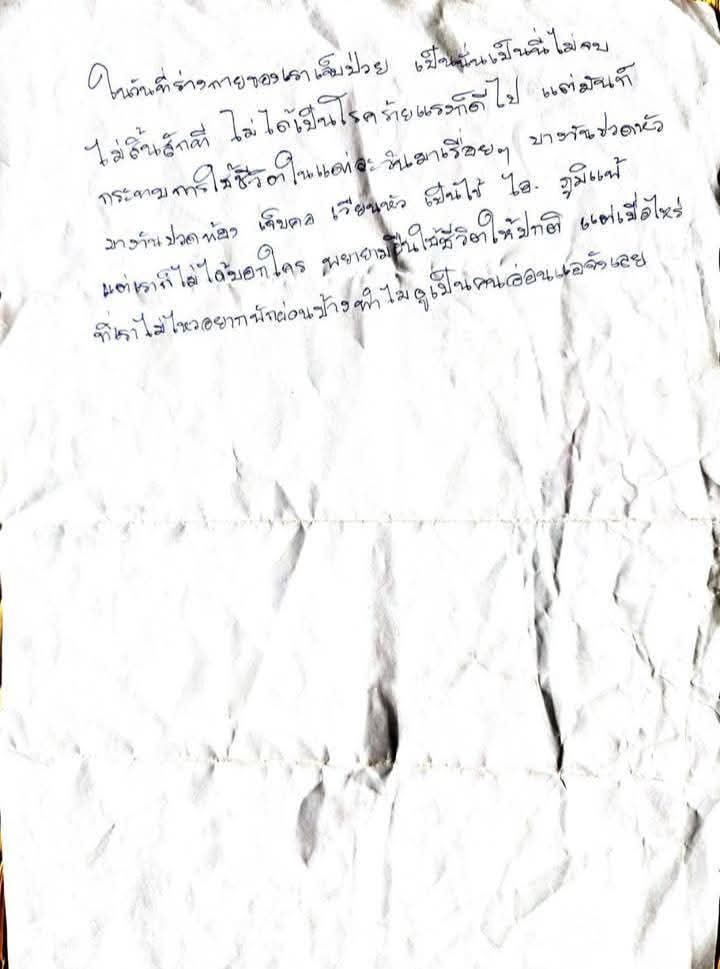 ในวันที่ร่างกายของเราเจ็บป่วย เป็นนั่นเป็นนี่ไม่จบ
ไม่สิ้นสักที ไม่ได้เป็นโรคร้ายแรงก็ดีไป แต่มันก็
กระทบการใช้ชีวิตในแต่ละวันมาเรื่อยๆ บางวันปวดหัว
บางวันปวดท้อง เจ็บคอ เวียนหัว เป็นไข้ ไอ. ภูมิแพ้
แต่เราก็ไม่ได้บอกใคร พยายามฝืนใช้ชีวิตให้ปกติ แต่เมื่อไหร่
ที่เราไม่ไหวอยากพักผ่อนบ้างทำไมดูเป็นคนอ่อนแอจังเลย